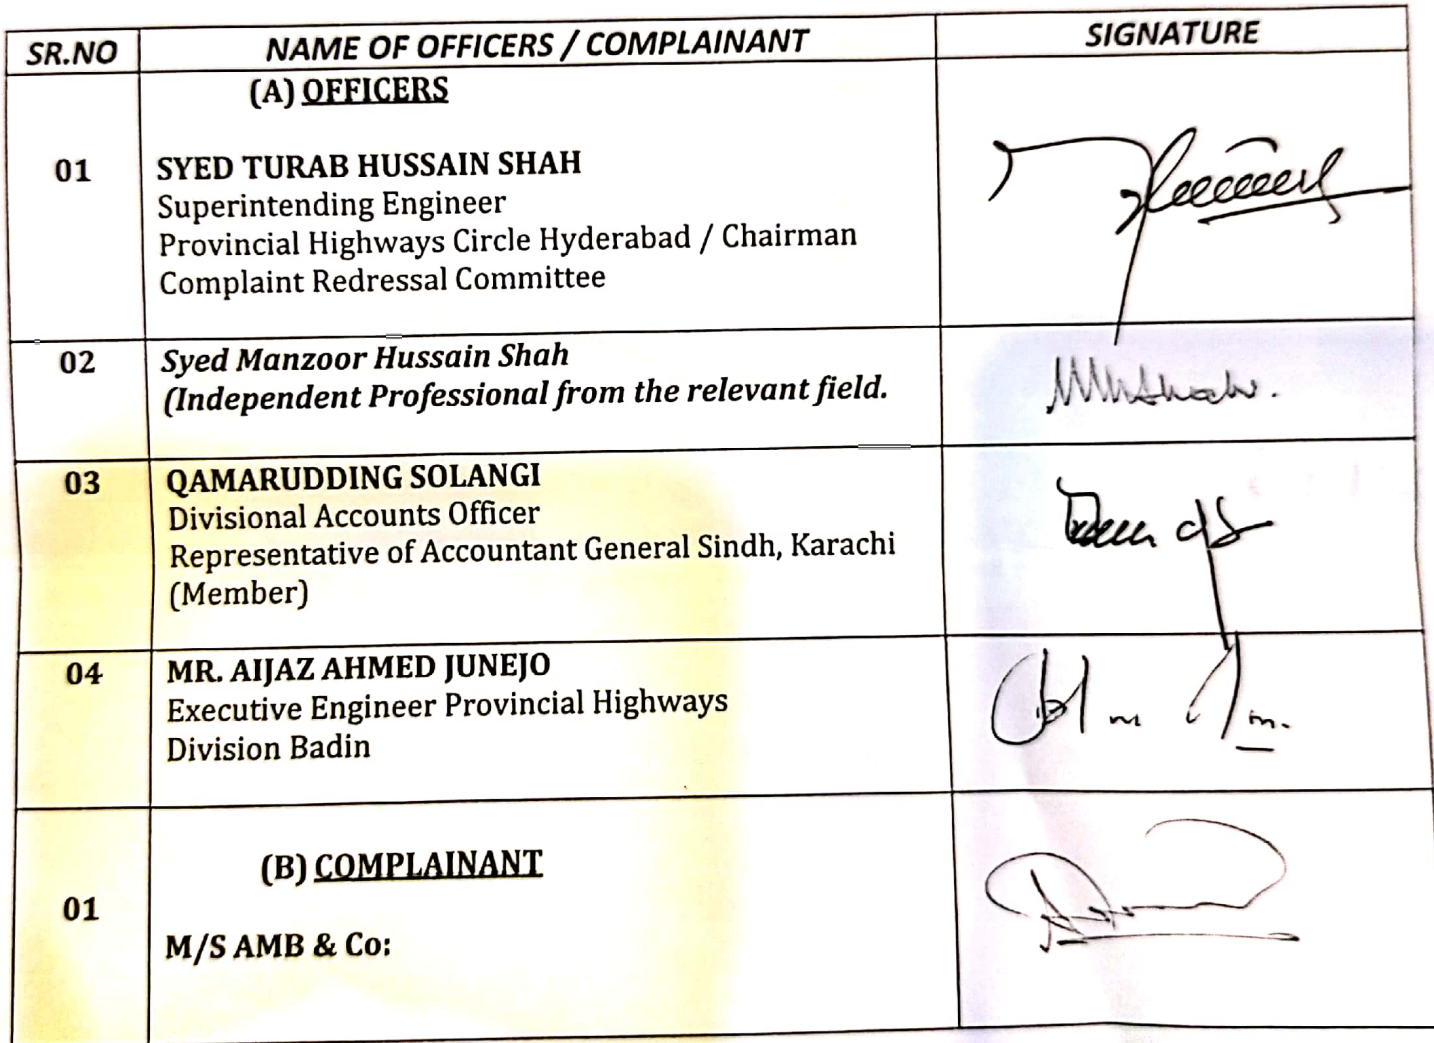 SR.NO NAME OF OFFICERS / COMPLAINANT SIGNATURE
(A) OFFICERS
01 SYED TURAB HUSSAIN SHAH
Superintending Engineer
Provincial Highways Circle Hyderabad / Chairman
Complaint Redressal Committee
02 Syed Manzoor Hussain Shah
(Independent Professional from the relevant field.
03 QAMARUDDING SOLANGI
Divisional Accounts Officer
Representative of Accountant General Sindh, Karachi
(Member)
04 MR. AIJAZ AHMED JUNEJO
Executive Engineer Provincial Highways
Division Badin
(B) COMPLAINANT
01
M/S AMB & Co: